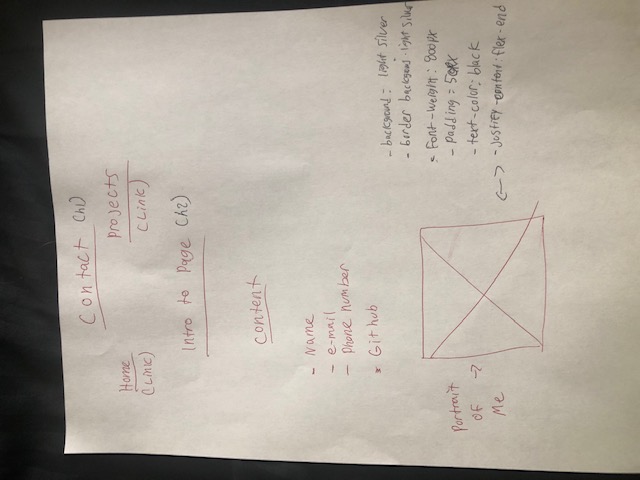 Contact (h1)
Home
(Link)
Projects
(Link)
Intro to Page (h2)
Content
- Name
- e-mail
- Phone number
* Github
Portrait
of
Me
- background: light silver
- border backgroun: light silver
- Font-weight: 800px
- Padding = 50px
- text-color: black
- Justify-content: flex-end